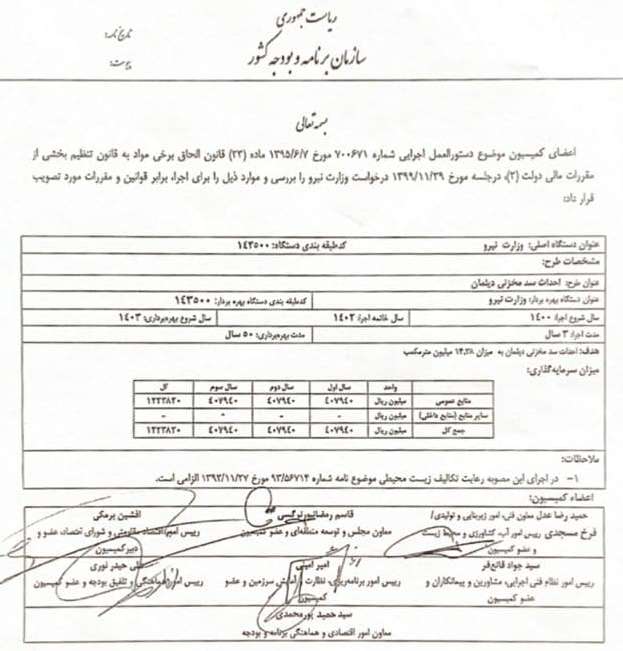 ریاست جمهوری
سازمان برنامه و بودجه کشور
تاریخ نامه:
پیوست:
بسمه تعالی
اعضای کمیسیون موضوع دستورالعمل اجرایی شماره ۷۰۰۶۷۱ مورخ ۱۳۹۵/۶/۷ ماده (۲۳) قانون الحاق برخی مواد به قانون تنظیم بخشی از
مقررات مالی دولت (۲)، درجلسه مورخ ۱۳۹۹/۱۱/۲۹ درخواست وزارت نیرو را بررسی و موارد ذیل را برای اجرا، برابر قوانین و مقررات مورد تصویب
قرار داد:
عنوان دستگاه اصلی: وزارت نیرو کدطبقه بندی دستگاه: ۱۴۳۵۰۰
مشخصات طرح:
عنوان طرح: احداث سد مخزنی دیلمان
عنوان دستگاه بهره بردار: وزارت نیرو کدطبقه بندی دستگاه بهره بردار: ۱۴۳۵۰۰
سال شروع اجرا: ۱۴۰۰ سال خاتمه اجرا: ۱۴۰۲ سال شروع بهره‌برداری: ۱۴۰۳
مدت اجرا: ۳ سال مدت بهره‌برداری: ۵۰ سال
هدف: احداث سد مخزنی دیلمان به میزان ۱۴,۳۸ میلیون مترمکعب
میزان سرمایه‌گذاری:
واحد سال اول سال دوم سال سوم کل
منابع عمومی میلیون ریال ۴۰۷۹۴۰ ۴۰۷۹۴۰ ۴۰۷۹۴۰ ۱۲۲۳۸۲۰
سایر منابع (منابع داخلی) میلیون ریال - - - -
جمع کل میلیون ریال ۴۰۷۹۴۰ ۴۰۷۹۴۰ ۴۰۷۹۴۰ ۱۲۲۳۸۲۰
ملاحظات:
۱- در اجرای این مصوبه رعایت تکالیف زیست محیطی موضوع نامه شماره ۹۳/۵۶۷۱۴ مورخ ۱۳۹۳/۱۱/۲۷ الزامی است.
اعضاء کمیسیون:
حمید رضا عدل معاون فنی، امور زیربنایی و تولیدی/
فرخ مسجدی رییس امور آب، کشاورزی و محیط زیست
و عضو کمیسیون
قاسم رمضانپورنرگسی
معاون مجلس و توسعه منطقه‌ای و عضو کمیسیون
افشین برمکی
رییس امور اقتصاد مقاومتی و شورای اقتصاد، عضو و
دبیر کمیسیون
سید جواد قانع‌فر
رییس امور نظام فنی اجرایی، مشاورین و پیمانکاران و
عضو کمیسیون
امیر امینی
رییس امور برنامه‌ریزی، نظارت و آمایش سرزمین و عضو
کمیسیون
علی حیدر نوری
رییس امور هماهنگی و تلفیق بودجه و عضو کمیسیون
سید حمید پورمحمدی
معاون امور اقتصادی و هماهنگی برنامه و بودجه